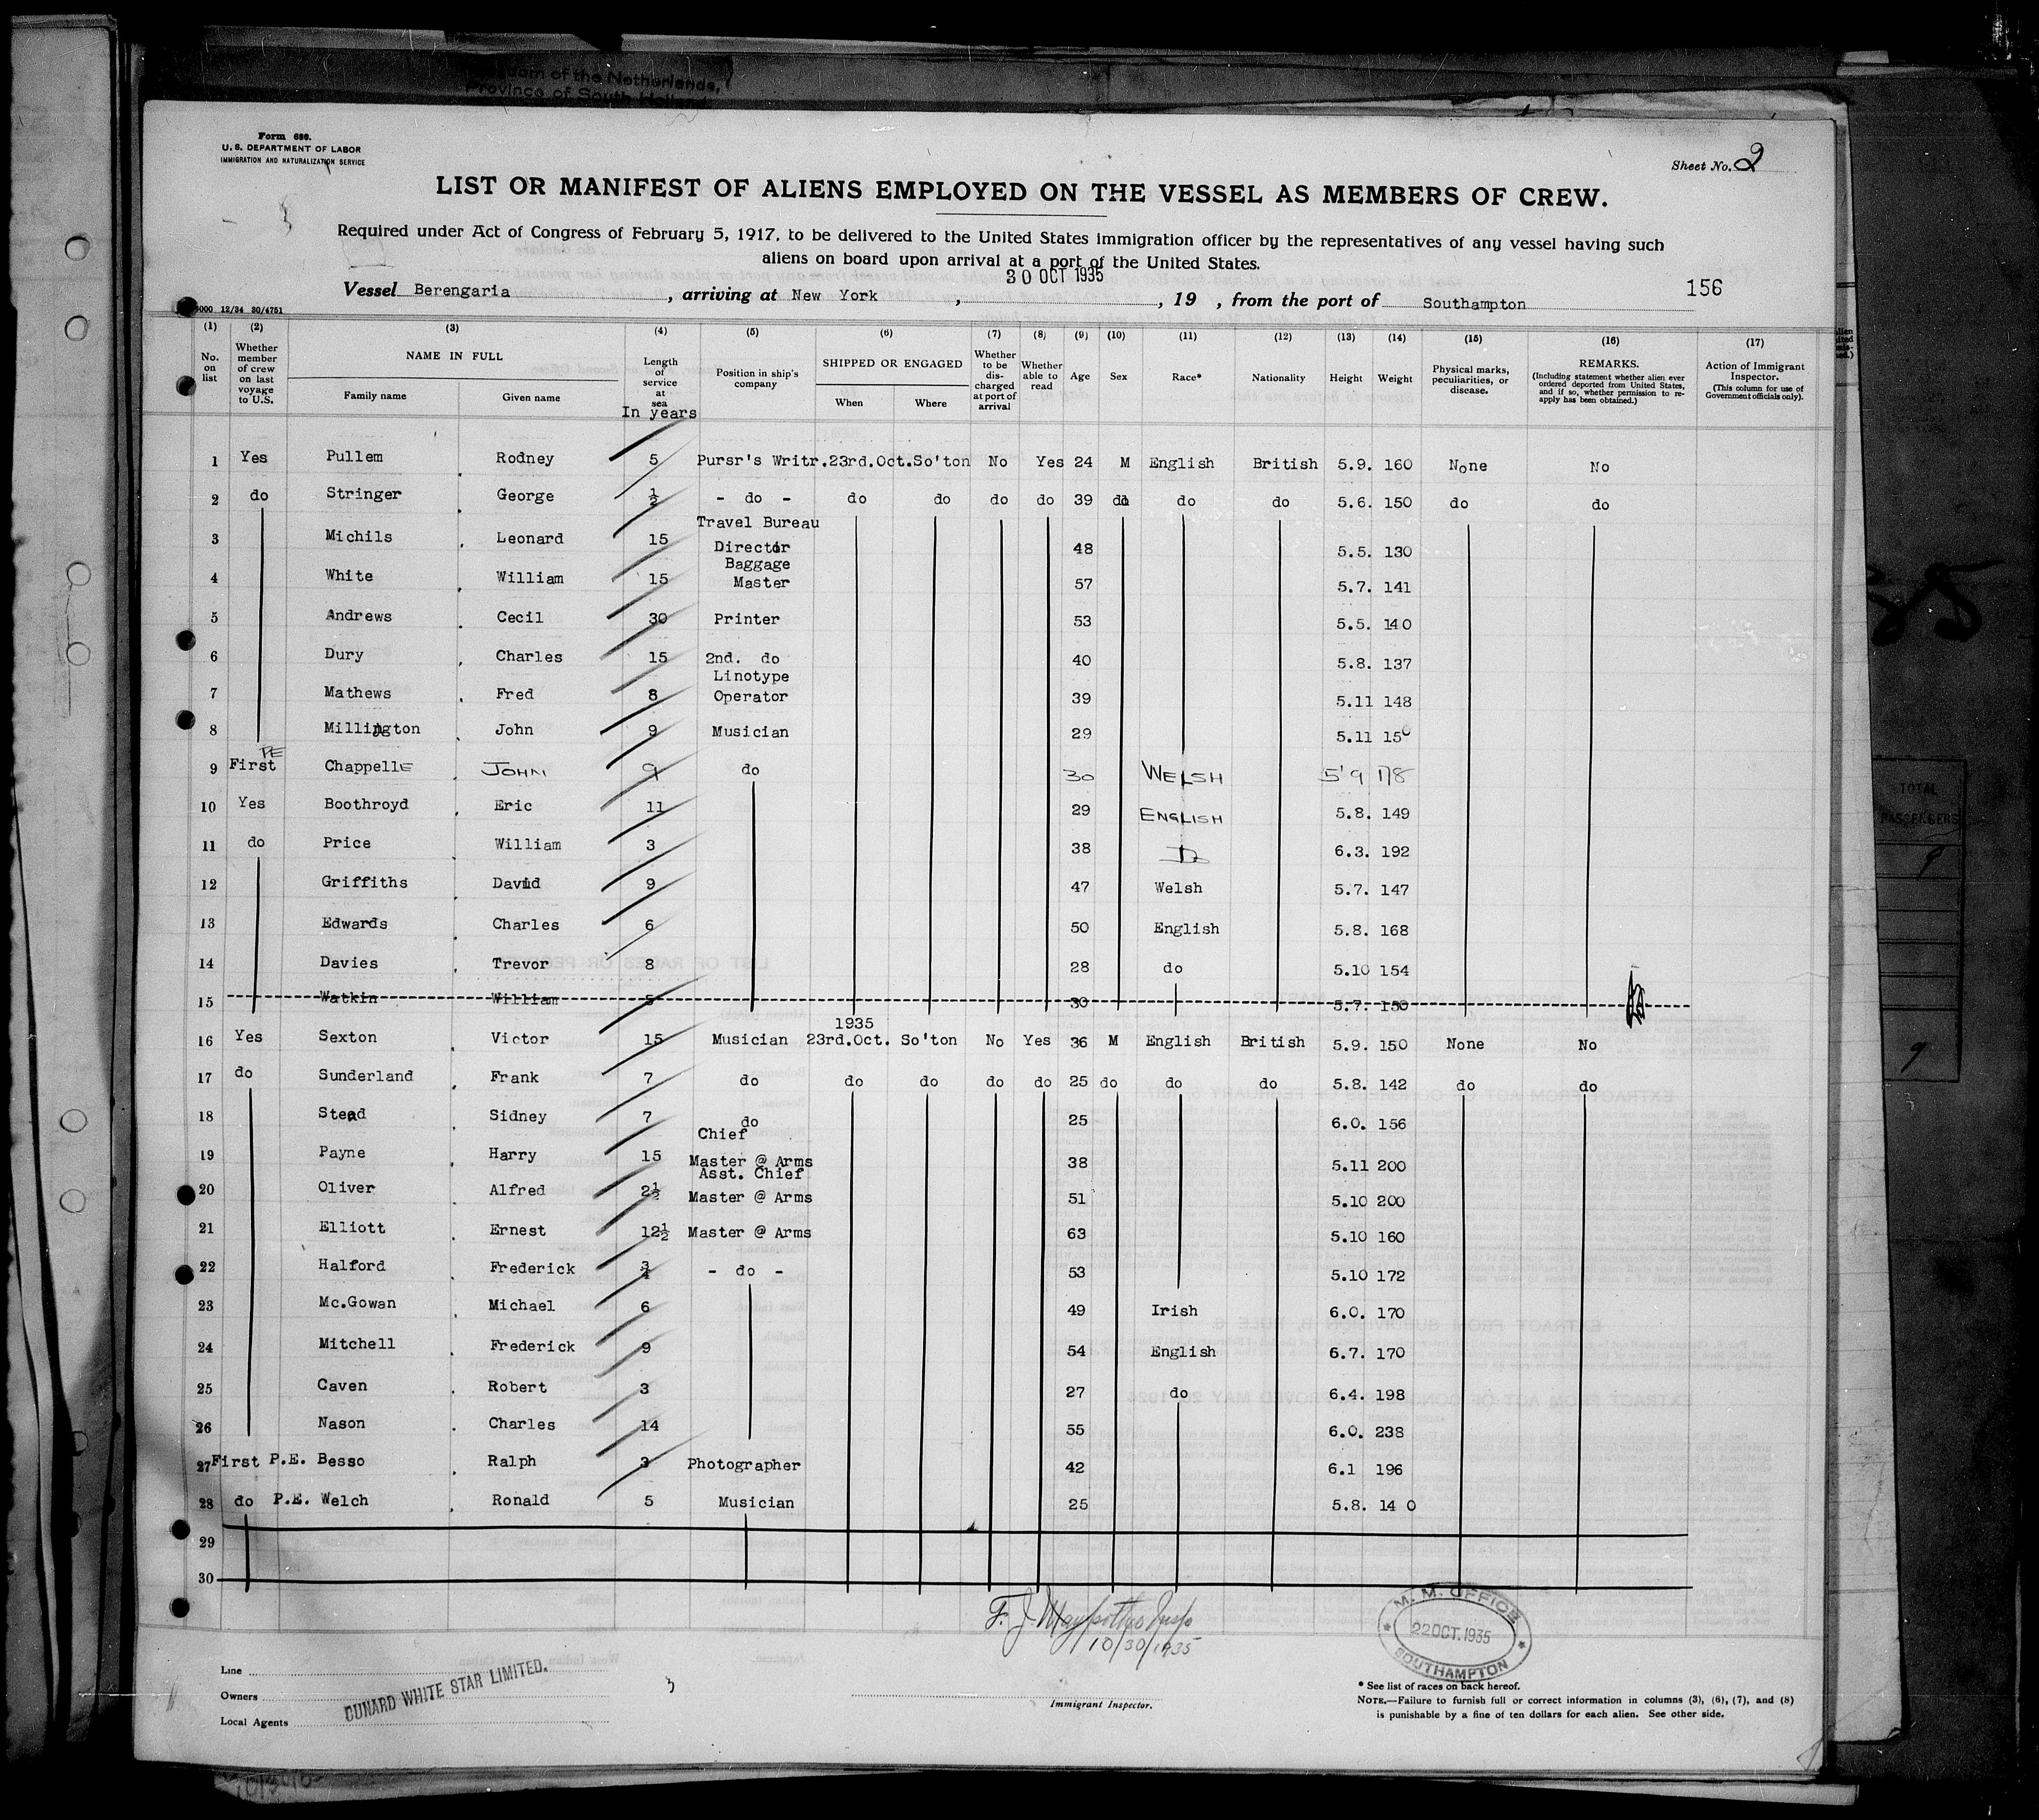 Kingdom of the Netherlands,
Province of South Holland
Form 680.
U. S. DEPARTMENT OF LABOR
IMMIGRATION AND NATURALIZATION SERVICE
Sheet No. 2
LIST OR MANIFEST OF ALIENS EMPLOYED ON THE VESSEL AS MEMBERS OF CREW.
Required under Act of Congress of February 5, 1917, to be delivered to the United States immigration officer by the representatives of any vessel having such
aliens on board upon arrival at a port of the United States.
30 OCT 1935
156
Vessel Berengaria, arriving at New York, , 19 , from the port of Southampton
12/34 30/4751
(1) (2) (3) (4) (5) (6) (7) (8) (9) (10) (11) (12) (13) (14) (15) (16) (17)
No. on list
Whether member of crew on last voyage to U.S.
NAME IN FULL
Family name Given name
Length of service at sea
In years
Position in ship's company
SHIPPED OR ENGAGED
When Where
Whether to be discharged at port of arrival
Whether able to read
Age
Sex
Race*
Nationality
Height
Weight
Physical marks, peculiarities, or disease.
REMARKS.
(Including statement whether alien ever ordered deported from United States, and if so, whether permission to reapply has been obtained.)
Action of Immigrant Inspector.
(This column for use of Government officials only).
1 Yes Pullem , Rodney 5 Pursr's Writr. 23rd.Oct. So'ton No Yes 24 M English British 5.9. 160 None No
2 do Stringer , George ½ - do - do do do do 39 do do do 5.6. 150 do do
3 Michils , Leonard 15 Travel Bureau Director 48 5.5. 130
4 White , William 15 Baggage Master 57 5.7. 141
5 Andrews , Cecil 30 Printer 53 5.5. 140
6 Dury , Charles 15 2nd. do 40 5.8. 137
7 Mathews , Fred 8 Linotype Operator 39 5.11 148
8 Millington , John 9 Musician 29 5.11 150
9 First PE Chappelle , JOHN 9 do 30 WELSH 5'9 178
10 Yes Boothroyd , Eric 11 29 ENGLISH 5.8. 149
11 do Price , William 3 38 Do 6.3. 192
12 Griffiths , David 9 47 Welsh 5.7. 147
13 Edwards , Charles 6 50 English 5.8. 168
14 Davies , Trevor 8 28 do 5.10 154
15 Watkin William 5 30 5.7. 150
1935
16 Yes Sexton , Victor 15 Musician 23rd.Oct. So'ton No Yes 36 M English British 5.9. 150 None No
17 do Sunderland , Frank 7 do do do do do 25 do do do 5.8. 142 do do
18 Stead , Sidney 7 do 25 6.0. 156
19 Payne , Harry 15 Chief Master @ Arms 38 5.11 200
20 Oliver , Alfred 2½ Asst. Chief Master @ Arms 51 5.10 200
21 Elliott , Ernest 12½ Master @ Arms 63 5.10 160
22 Halford , Frederick ¾ - do - 53 5.10 172
23 Mc.Gowan , Michael 6 49 Irish 6.0. 170
24 Mitchell , Frederick 9 54 English 6.7. 170
25 Caven , Robert 3 27 do 6.4. 198
26 Nason , Charles 14 55 6.0. 238
27 First P.E. Besso , Ralph 3 Photographer 42 6.1 196
28 do P.E. Welch , Ronald 5 Musician 25 5.8. 14 0
29
30
10/30/1935
M. M. OFFICE
22 OCT. 1935
SOUTHAMPTON
Line
Owners
Local Agents
CUNARD WHITE STAR LIMITED.
Immigrant Inspector.
* See list of races on back hereof.
NOTE.—Failure to furnish full or correct information in columns (3), (6), (7), and (8)
is punishable by a fine of ten dollars for each alien. See other side.
TOTAL
PASSENGERS
9
9